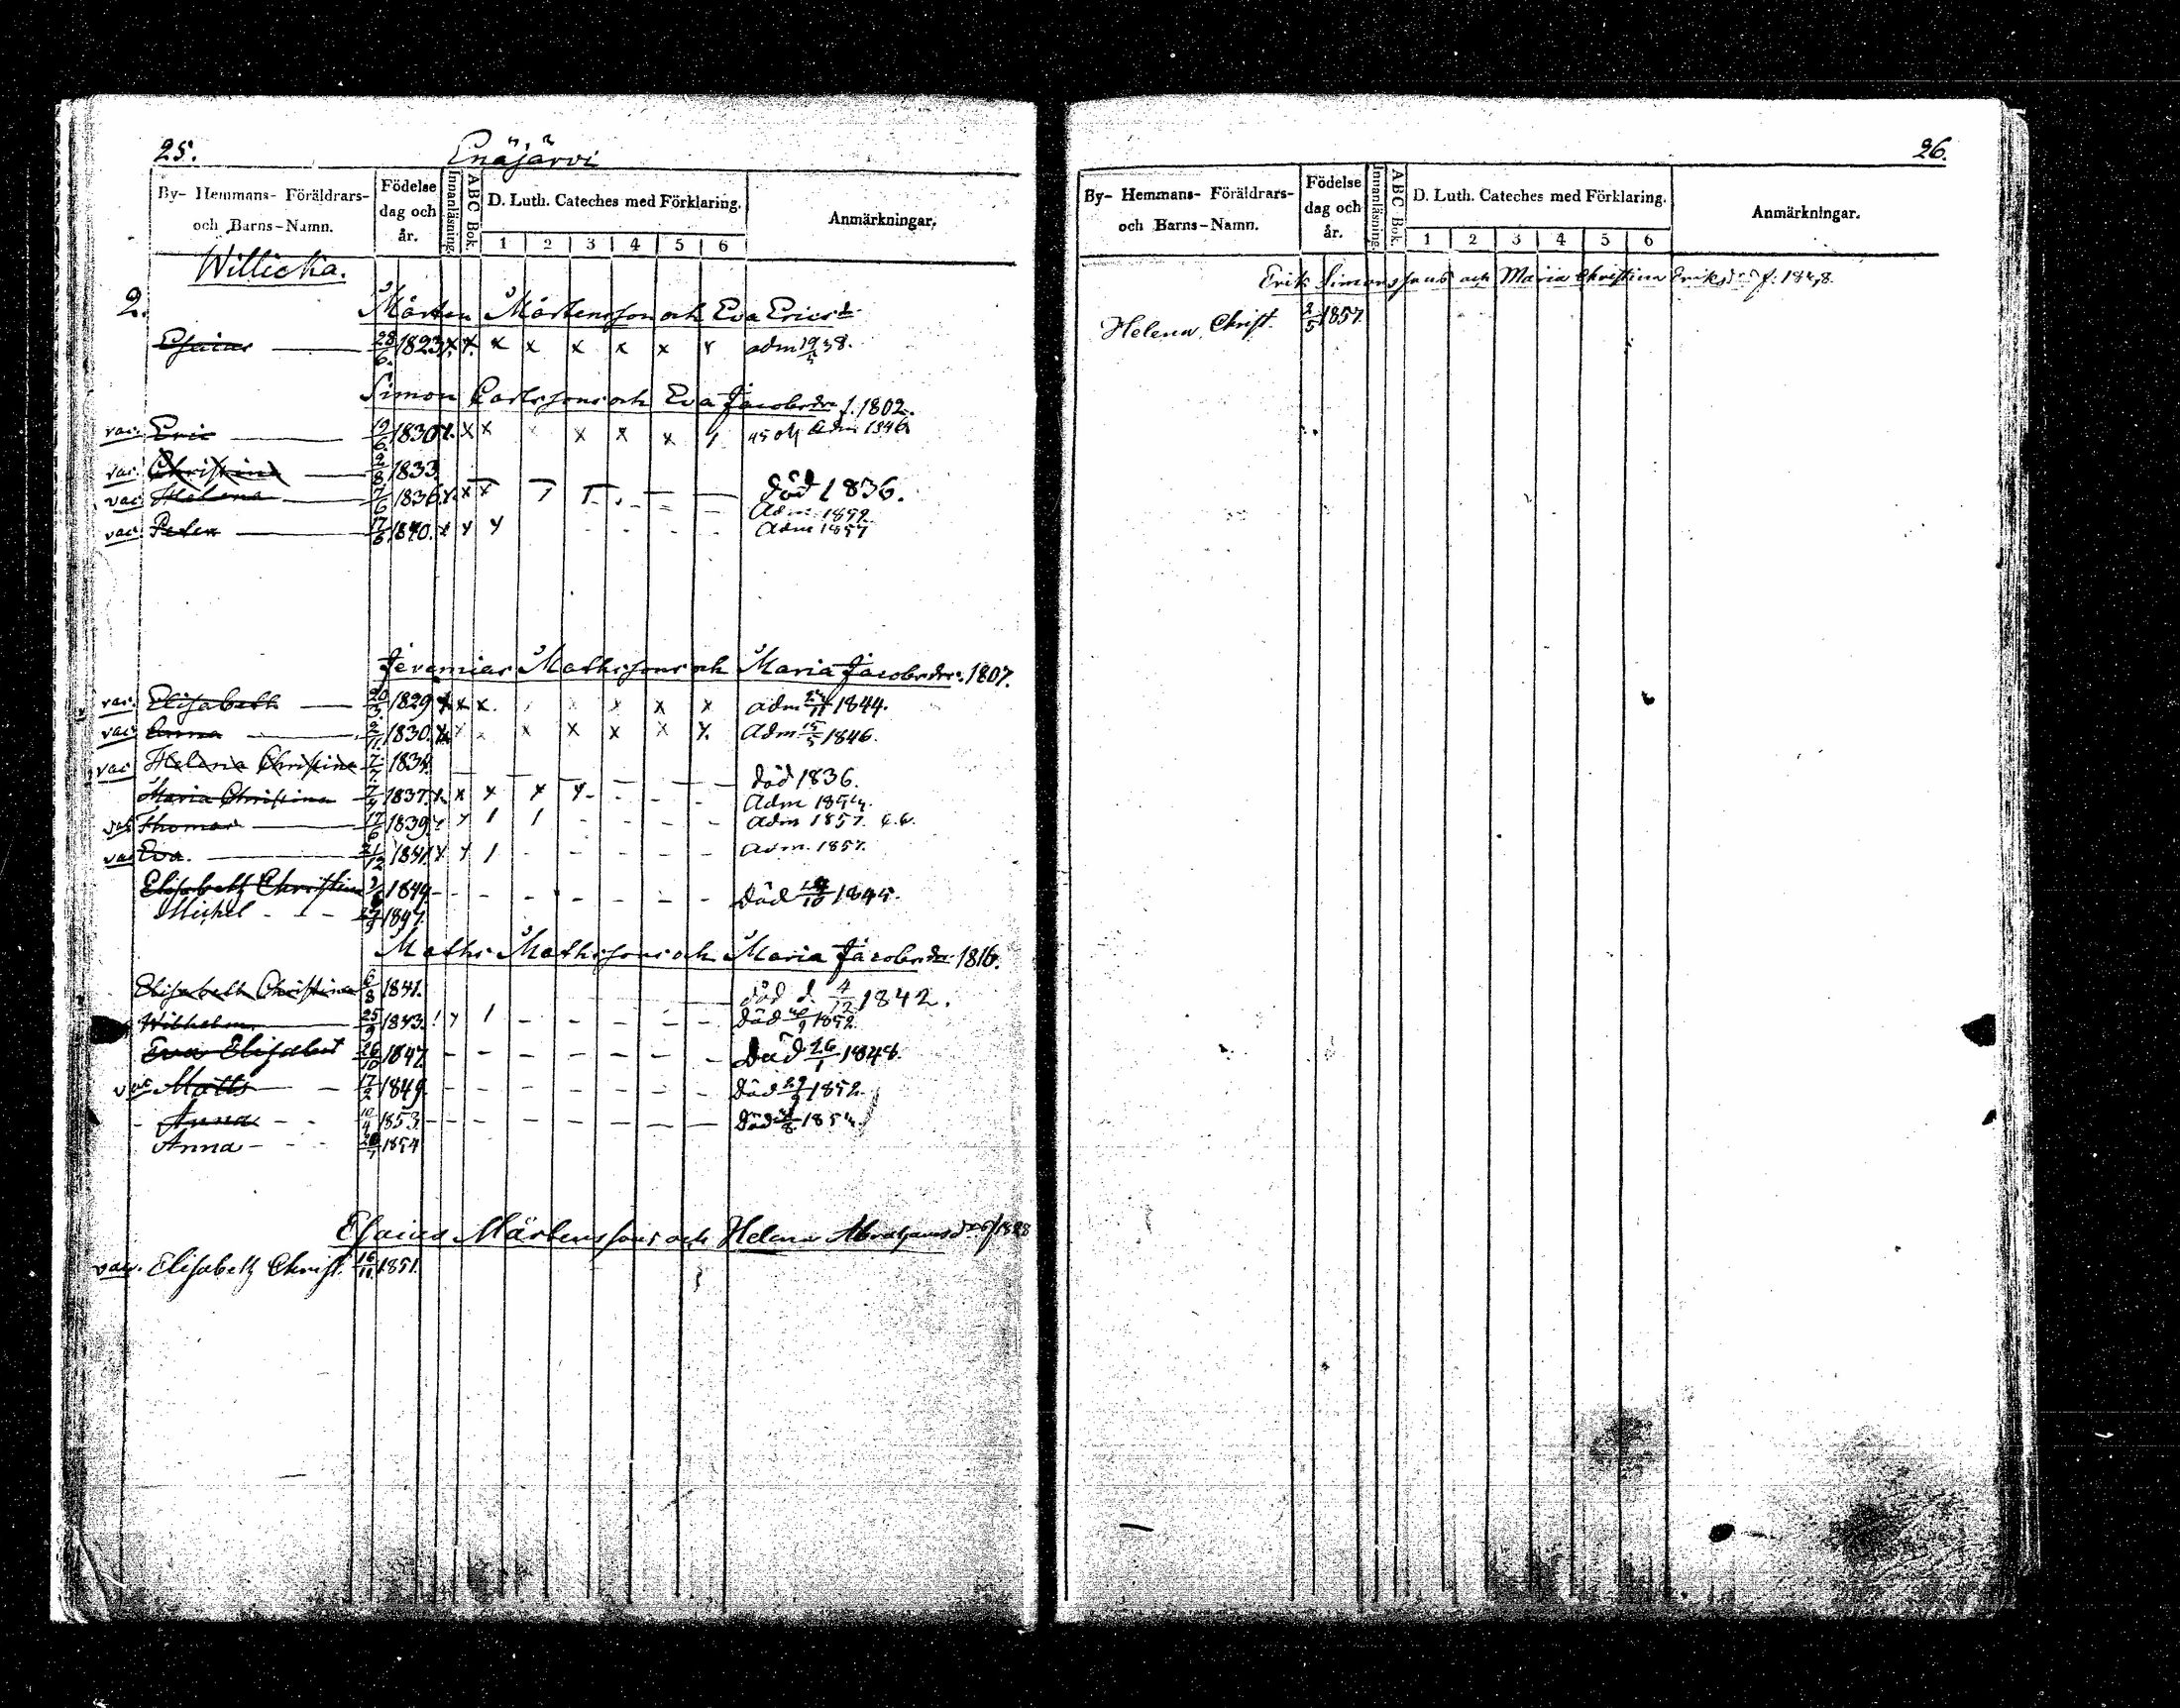 25.
Enäjärvi
By- Hemmans- Föräldrars- och Barns-Namn.
Födelse dag och år.
Innanläsning.
A B C Bok.
D. Luth. Cateches med Förklaring.
1 2 3 4 5 6
Anmärkningar.
Willicka.
2.
Mårten Mårtensson och Eva Ericsdr
Esaias 28/6 1823. x x x x x x x x adm 19/5 38.
Simon Carlssons och Eva Jacobsdr f. 1802.
vac. Eric 19/6 1830. x x x x x x Adm 1846.
vac. Christina 2/8 1833. död 1836.
vac. Helena 7/6 1836. x x x Adm 1852.
vac. Peter 17/6 1840. x x x Adm 1857
Jeremias Mathssons och Maria Jacobsdr. 1807.
vac. Elisabeth 20/3 1829 x x x x x x adm 24/11 1844.
vac. Anna 2/11 1830. x x x x x x x Adm. 15/5 1846.
vac Helena Christina 7/7 1834. död 1836.
Maria Christina 7/4 1837. x x x x x Adm 1854.
vac Thomas 17/6 1839. x x 1 1 Adm 1857.
vac Eva. 21/12 1841. x x 1 Adm. 1857.
Elisabeth Christina 1844 Död 1845.
Michel 1847.
Maths Mathssons och Maria Jacobsdr 1816.
Elisabeth Christina 6/8 1841. död d. 4/12 1842.
Wilhelm 25/9 1843. Död 1852.
Eva Elisabet 26/10 1847. Död 26/1 1848.
vac Matts 17/2 1849. Död 1852.
Anna 10/4 1853 Död 1854.
Anna 1854
Esaias Mårtenssons och Helena Abrahamsdr f 1828
vac. Elisabeth Christ. 16/11 1851.
26.
By- Hemmans- Föräldrars- och Barns-Namn.
Födelse dag och år.
Innanläsning.
A B C Bok.
D. Luth. Cateches med Förklaring.
1 2 3 4 5 6
Anmärkningar.
Erik Simonssons och Maria Christina Eriksdr f.
Helena Christ. 2/5 1857.